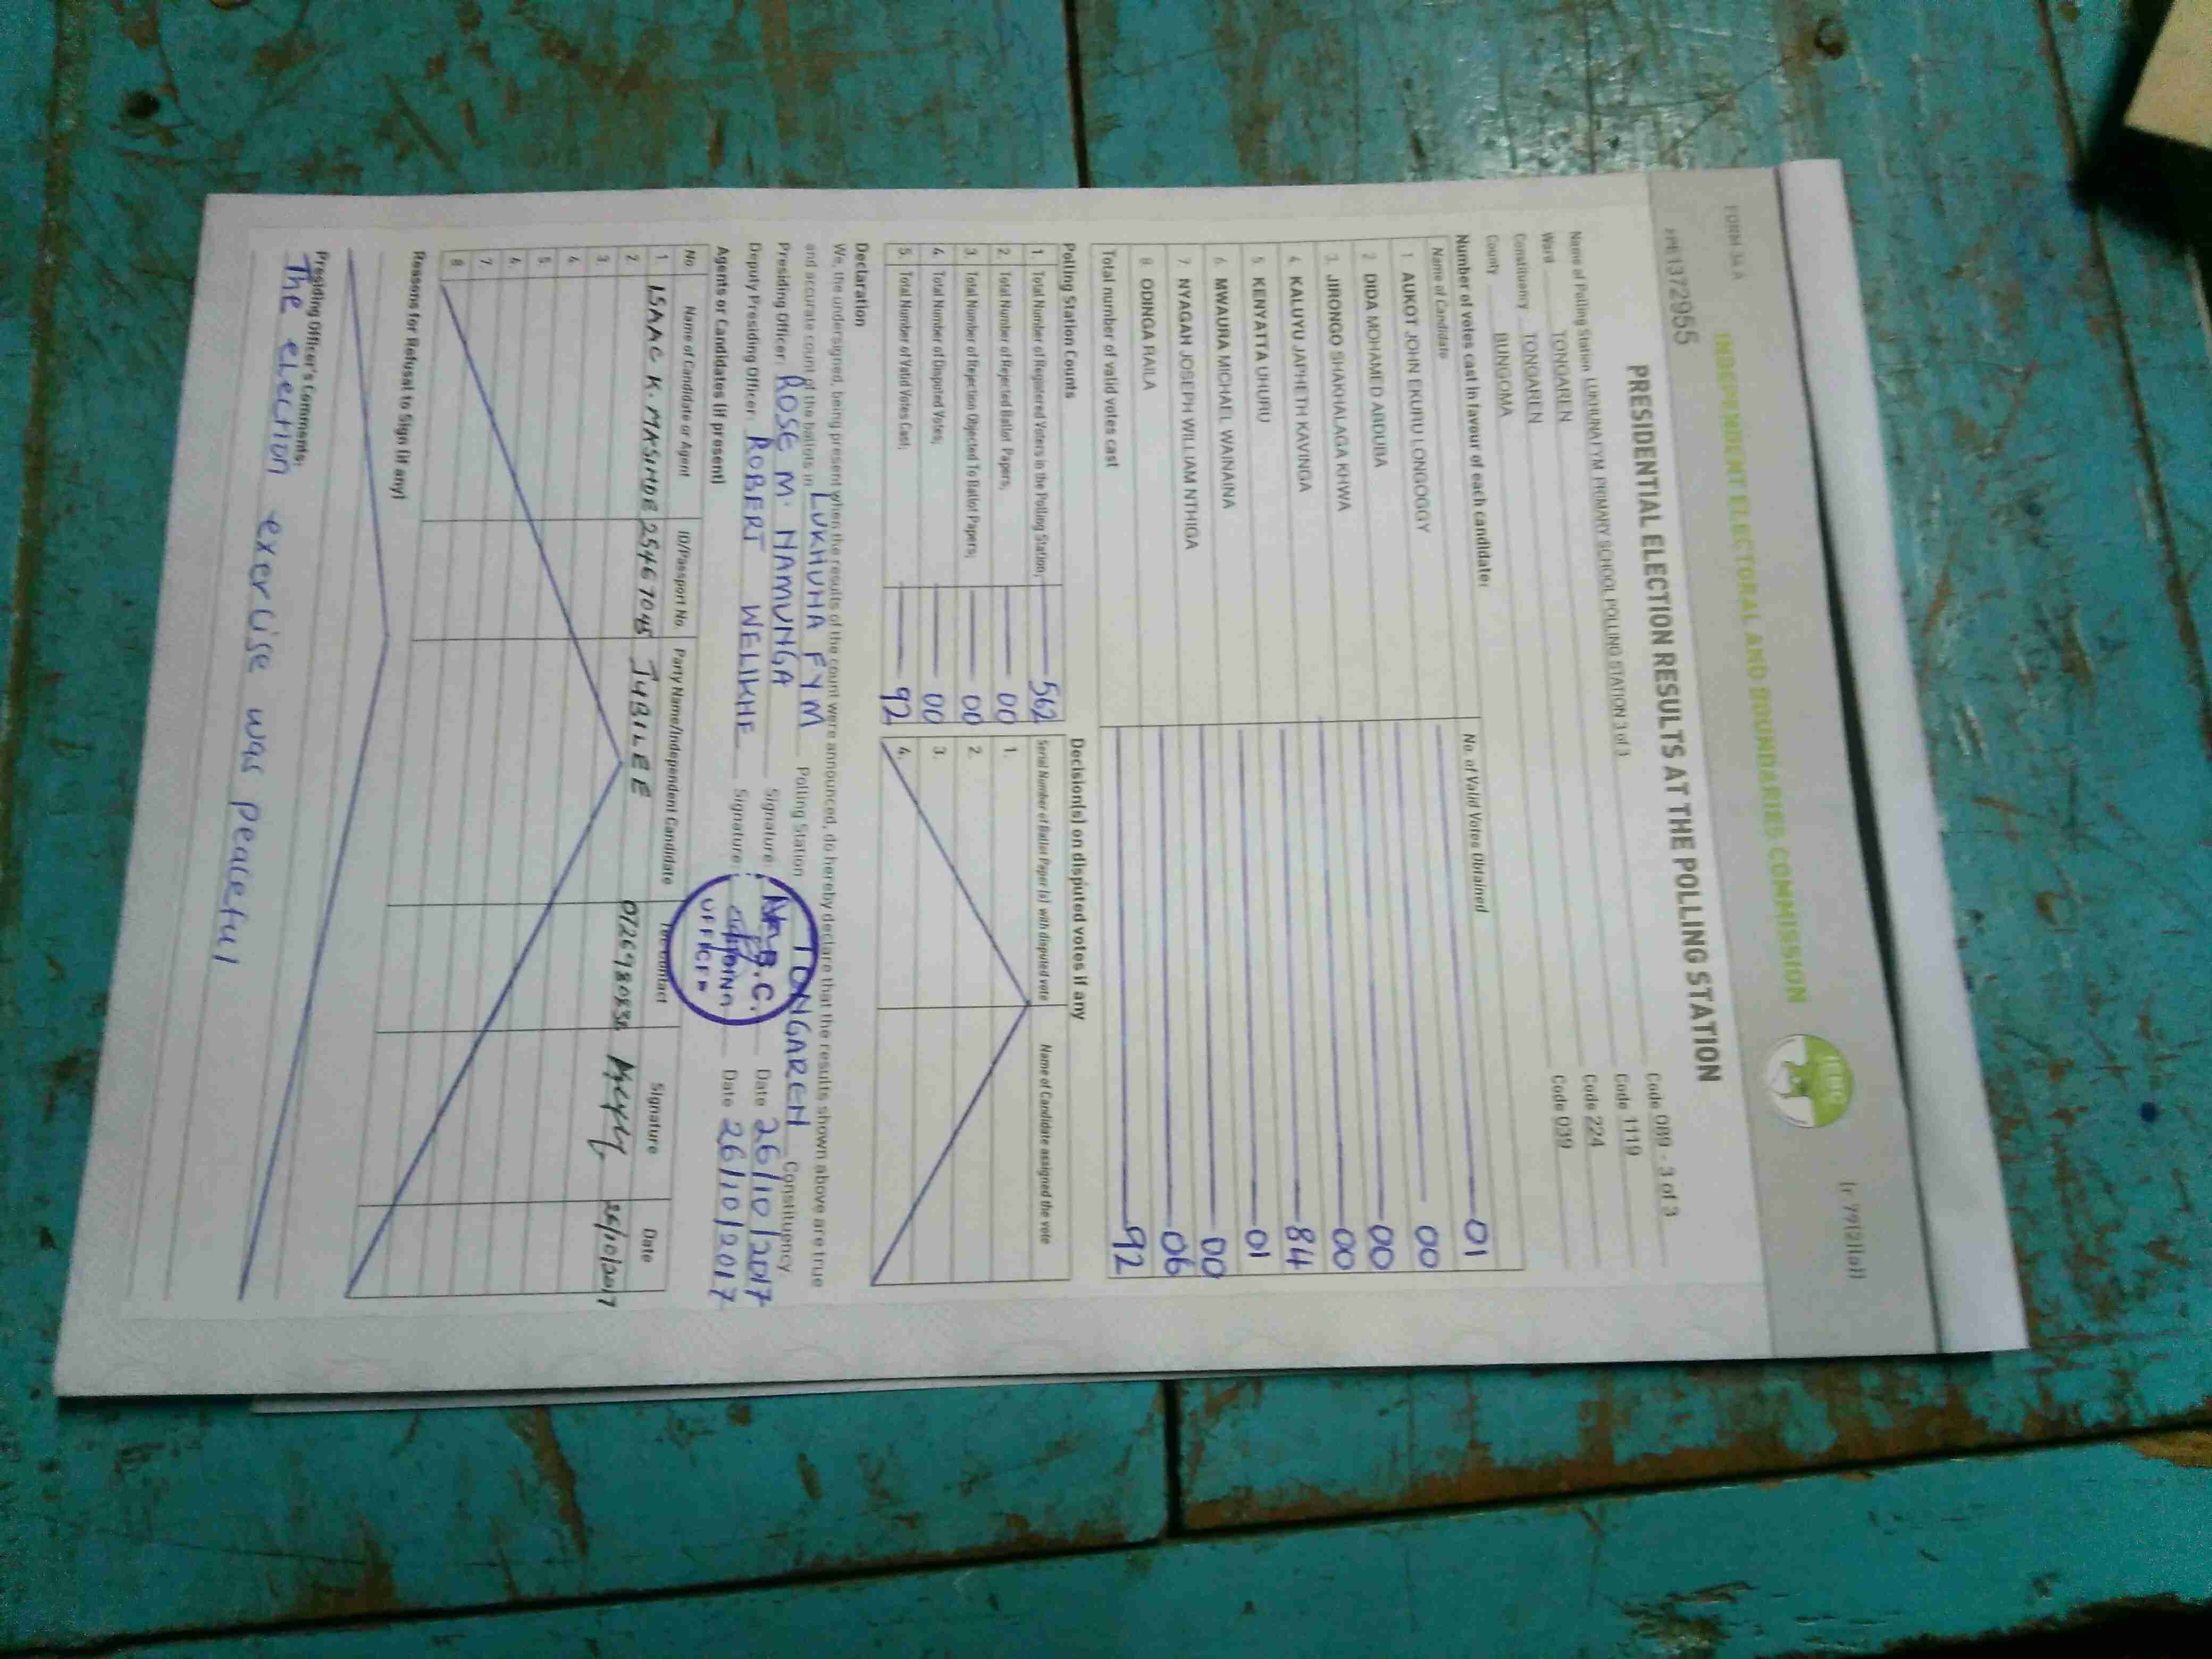 FORM 34 A
(r 79(2)(a))
INDEPENDENT ELECTORAL AND BOUNDARIES COMMISSION
IEBC
PRESIDENTIAL ELECTION RESULTS AT THE POLLING STATION
Name of Polling Station LUKHUNA FYM PRIMARY SCHOOL POLLING STATION 3 of 3 Code 089 - 3 of 3
Ward TONGAREN Code 1119
Constituency TONGAREN Code 224
County BUNGOMA Code 039
Number of votes cast in favour of each candidate:
Name of Candidate No. of Valid Votes Obtained
1. AUKOT JOHN EKURU LONGOGGY 01
2 DIDA MOHAMED ABDUBA 00
3. JIRONGO SHAKHALAGA KHWA 00
4 KALUYU JAPHETH KAVINGA 00
5 KENYATTA UHURU 84
6 MWAURA MICHAEL WAINAINA 01
7 NYAGAH JOSEPH WILLIAM NTHIGA 00
8 ODINGA RAILA 06
Total number of valid votes cast 92
Polling Station Counts
1 Total Number of Registered Voters in the Polling Station; 562
2. Total Number of Rejected Ballot Papers; 00
3 Total Number of Rejection Objected To Ballot Papers; 00
4 Total Number of Disputed Votes; 00
5. Total Number of Valid Votes Cast; 92
Decision(s) on disputed votes if any
Serial Number of Ballot Paper (s) with disputed vote Name of Candidate assigned the vote
1.
2.
3.
4.
Declaration
We, the undersigned, being present when the results of the count were announced, do hereby declare that the results shown above are true
and accurate count of the ballots in LUKHUNA FYM Polling Station TONGAREN Constituency
Presiding Officer: ROSE M. NAMUNGA Signature: Date 26/10/2017
Deputy Presiding Officer: ROBERT WELIKHE Signature: Date 26/10/2017
Agents or Candidates (if present)
No Name of Candidate or Agent ID/Passport No Party Name/Independent Candidate Tel Contact Signature Date
1 ISAAC K. MASINDE 25467045 JUBILEE 26/10/2017
2
3
4
5
6.
7.
8
Reasons for Refusal to Sign (if any)
Presiding Officer's Comments:
The election exercise was peaceful